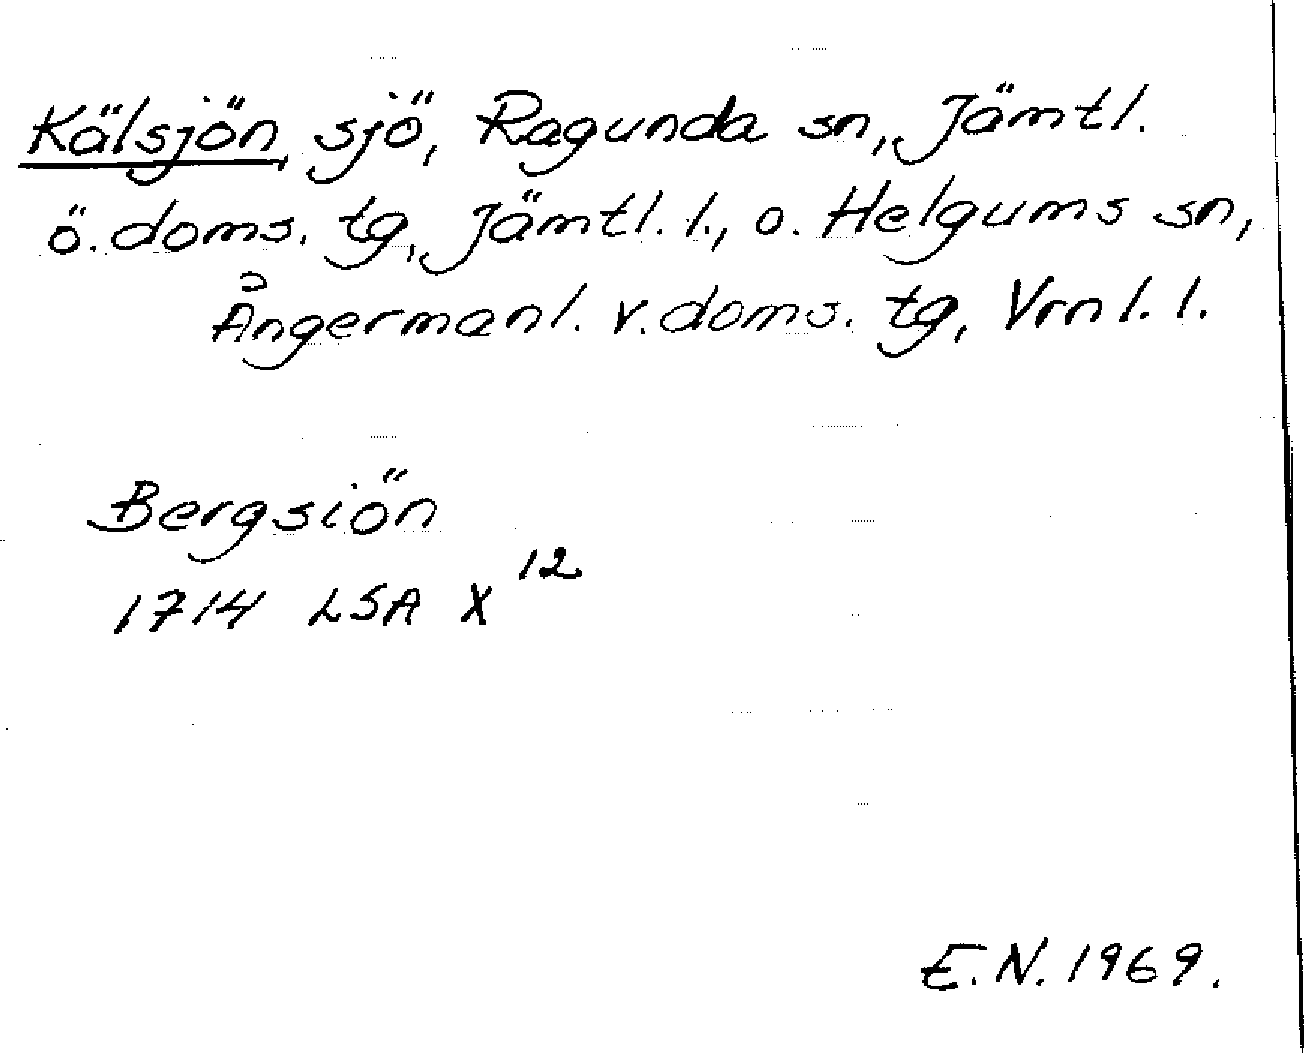 Kälsjön, sjö, Ragunda sn, Jämtl.
ö. doms. tg, Jämtl. l., o. Helgums sn,
Ångermanl. v. doms. tg, Vrnl. l.
Bergsiön
1714 LSA X 12
E.N. 1969.